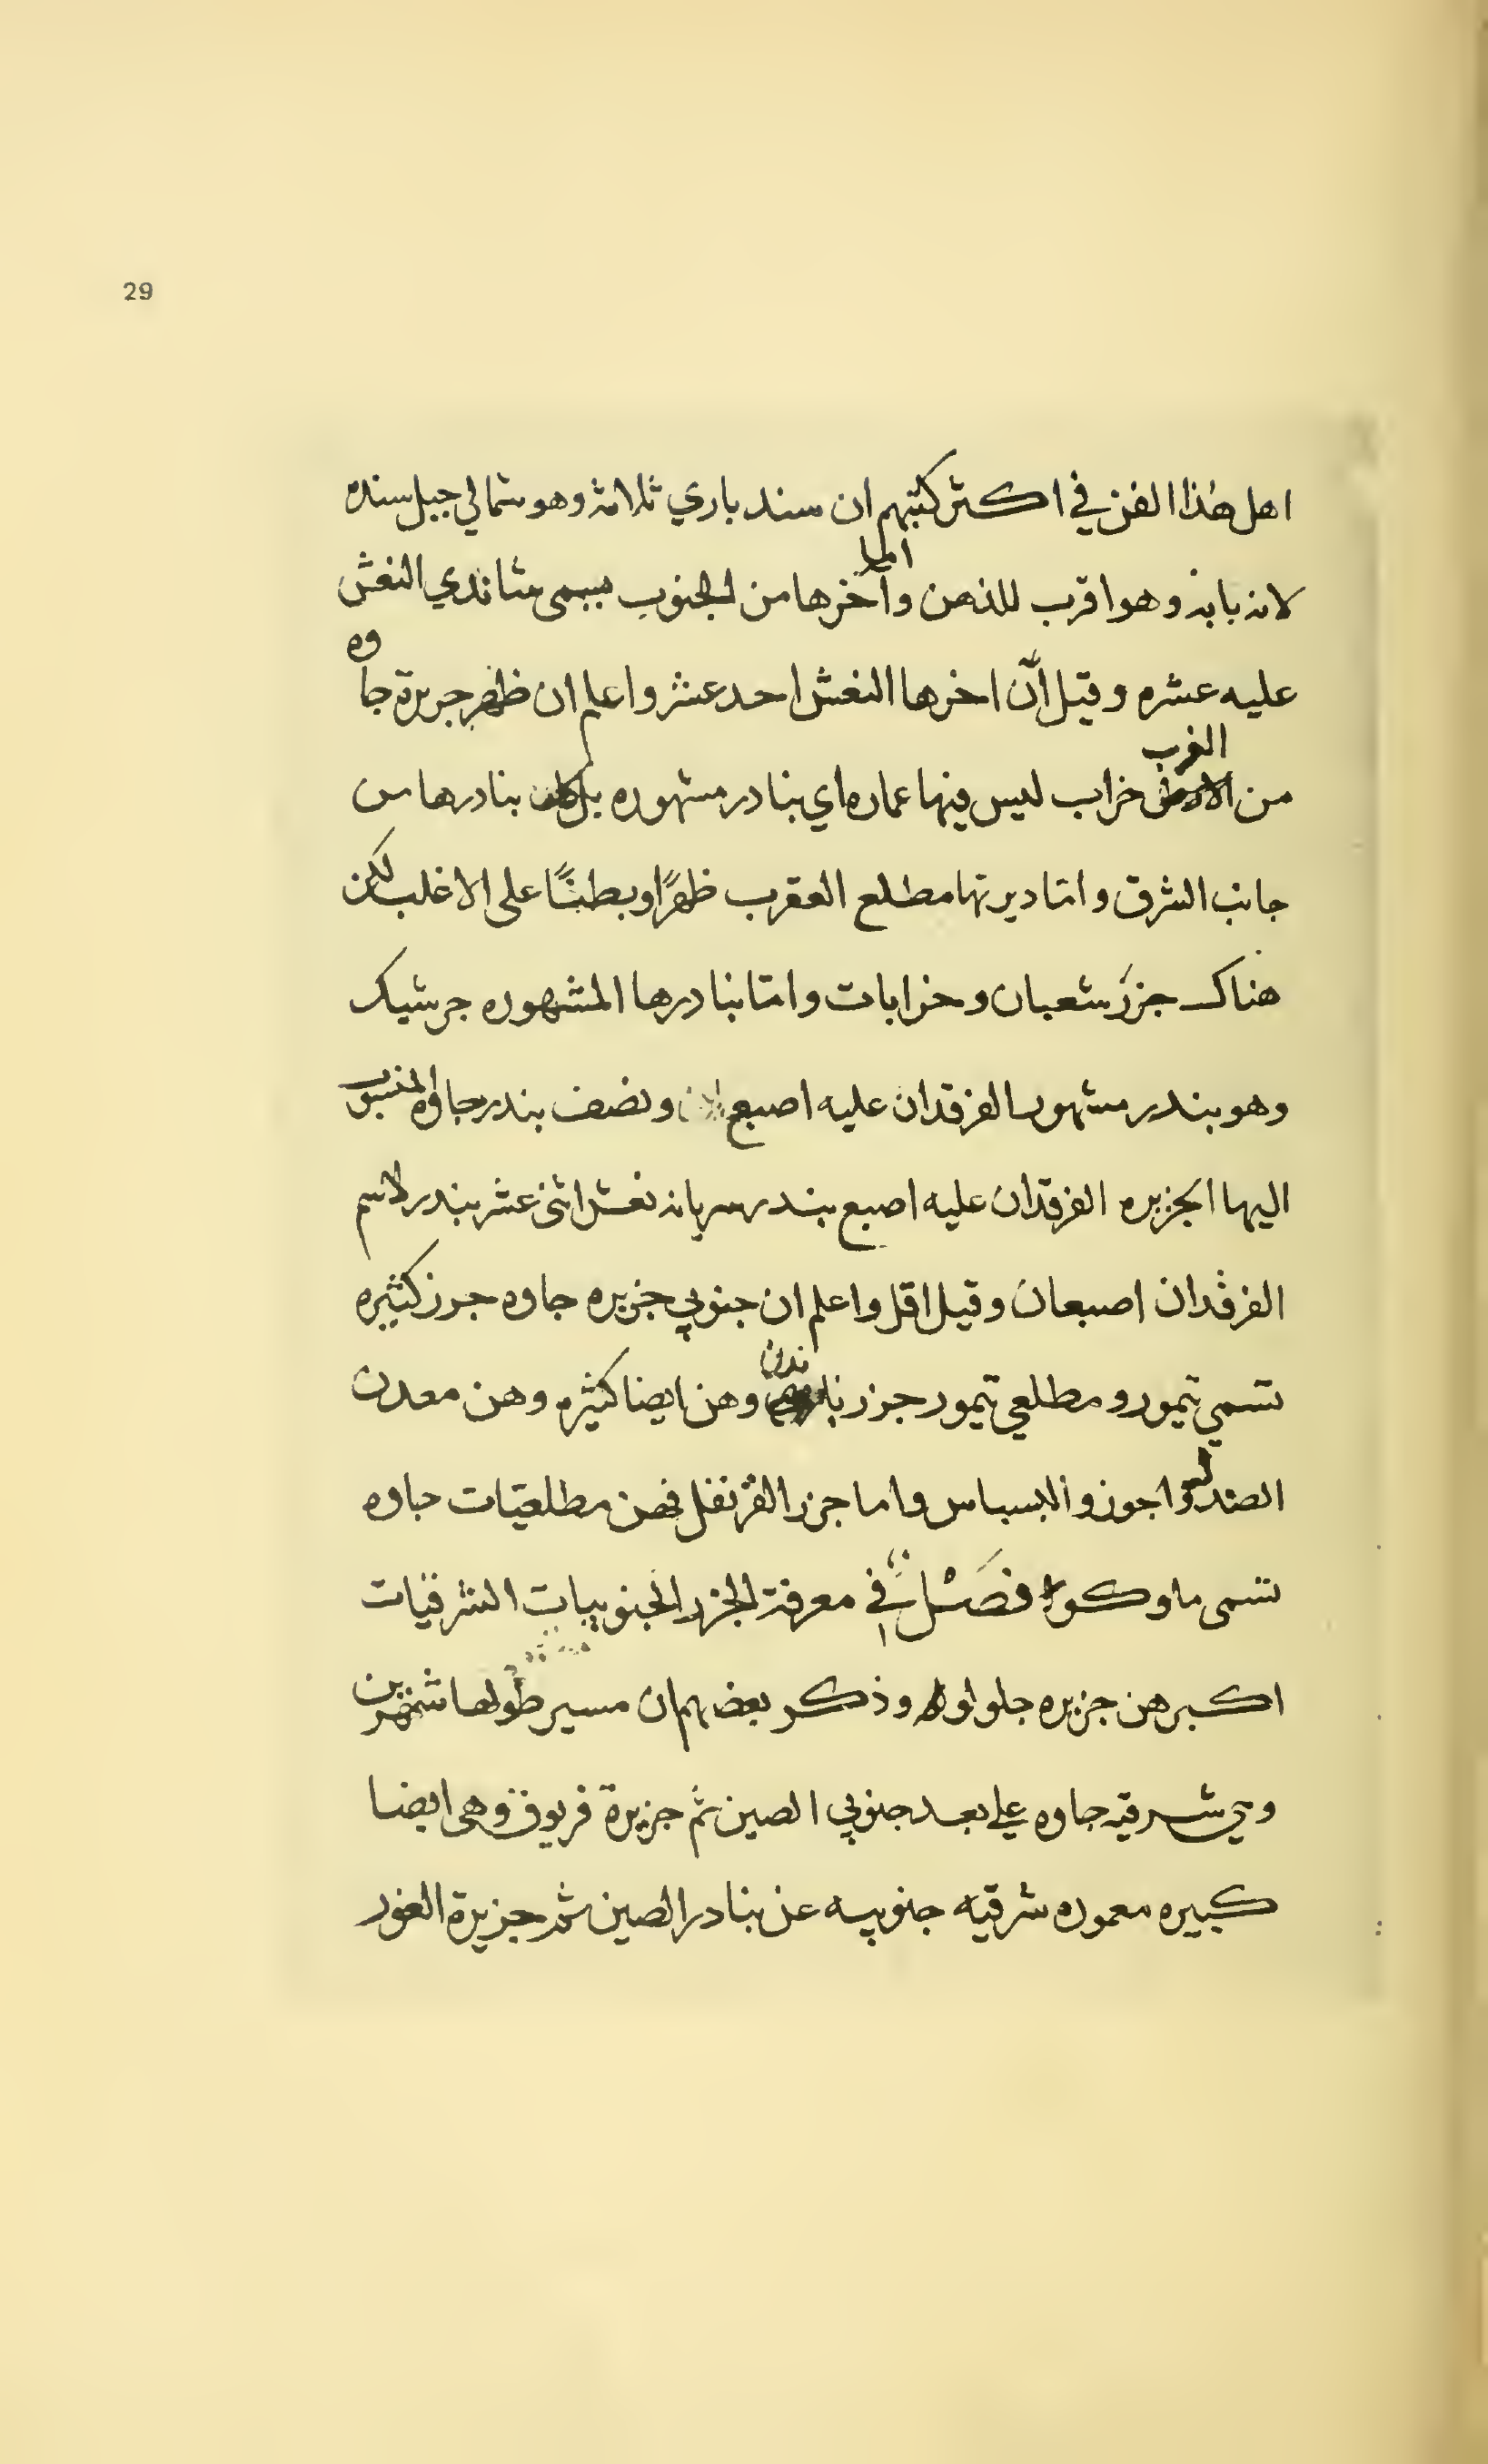 29
اهل هذا الفن في اكثر كتبهم ان سند باري ثلاثة وهو شمالي جبل سنده
لانه بابه وهو اقرب للذهن واما آخرها من الجنوب يسمى شاندي النعش
عليه عشره وقيل انّ اخرها النعش احد عشر واعلم ان ظهر جزيرة جاوه
من الغرب خراب ليس فيها عماره اي بنادر مشهوره بل بنادرها من
جانب الشرق وامّا ديرتها مطلع العقرب ظهرًا وبطنًا على الاغلب لكن
هناك جزر شعبان وخرابات وامّا بنادرها المشهوره جرشيك
وهو بندر مشهور الفرقدان عليه اصبع ونصف بندر جاوه المنسوب
اليها الجزيره الفرقدان عليه اصبع بندر سربايه نعش اثنى عشر بندر لاسم
الفرقدان اصبعان وقيل اقل واعلم ان جنوبي جزيره جاوه جرز كثيره
تسمي تيمور ومطلعي تيمور جزر باندن وهن ايضا كثيره وهن معدن
الصندل والجوز والبسباس واما جزر القرنفل فهن مطلعيّات جاوه
تسمى ملوكو فَصْلٌ في معرفة الجزر الجنوبيات الشرقيات
اكبرهن جزيره جلولو وذكر بعضهم ان مسير طولها شهرين
وهي شرقيه جاوه علي بعد جنوبي الصين ثم جزيرة فريوق وهي ايضا
كبيره معموره شرقيه جنوبيه عن بنادر الصين ثم جزيرة الغور